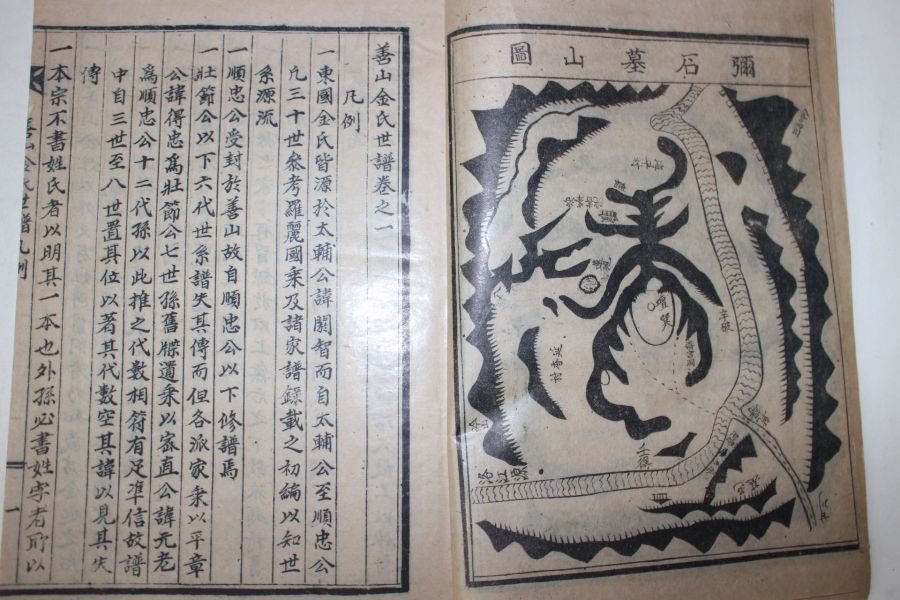 彌石墓山圖
洛江源
善山金氏世譜卷之一
凡例
一東國金氏皆源於太輔公諱閼智而自太輔公至順忠公
凡三十世參考羅麗國乘及諸家譜錄載之初編以知世
系源流
一順忠公受封於善山故自順忠公以下修譜焉
一壯節公以下六代世系譜失其傳而但各派家乘以平章
公諱得忠爲壯節公七世孫舊牒遺乘以密直公諱元老
爲順忠公十二代孫以此推之代數相符有足準信故譜
中自三世至八世置其位以著其代數空其諱以見其失
傳
一本宗不書姓氏者以明其一本也外孫必書姓字者所以
善山金氏世譜凡例
一